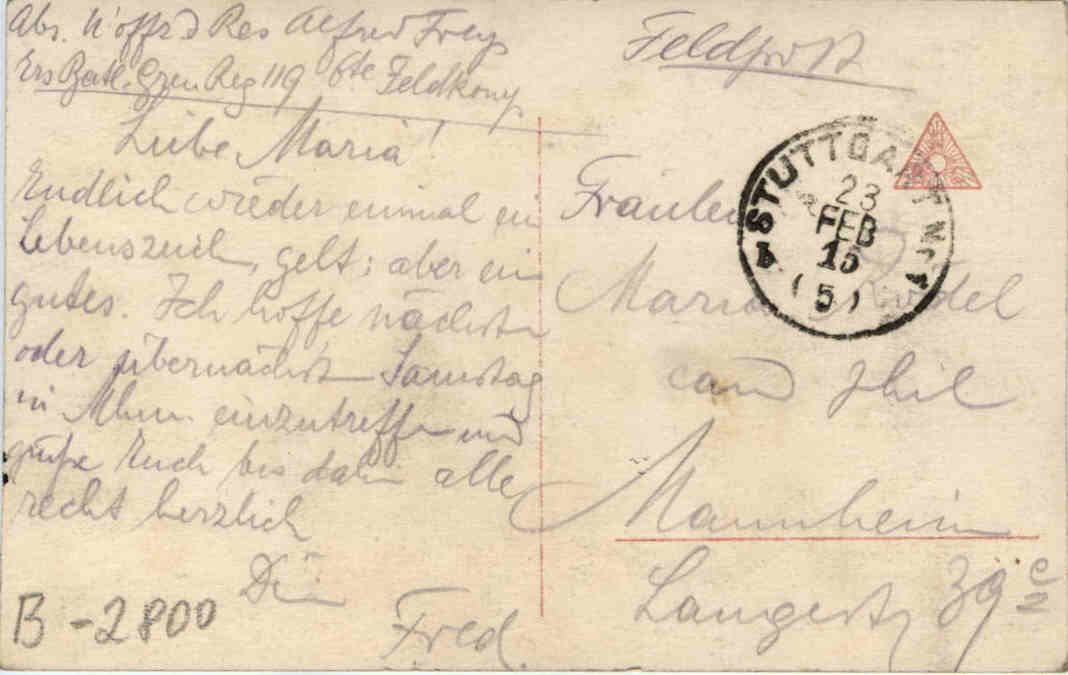 Abs. U'offz d Res Alfred Frey
Ers Batl. Gren Reg 119 6te Feldkomp
Liebe Maria!
Endlich wieder einmal ein
Lebenszeich, gelt; aber ein
gutes. Ich hoffe nächsten
oder übernächsten Samstag
in Mhm einzutreffen und
grüße Euch bis dahin alle
recht herzlich
Dein
Fred.
B-2800
Feldpost
STUTTGART Nr. 1
23
FEB
15
(5)
Fräulein
Maria
cand phil
Mannheim
Langestr 39 c/2